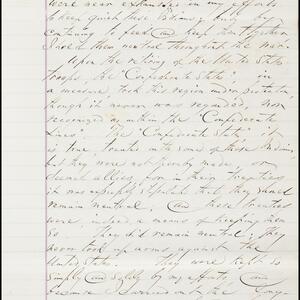 were near exhausted in my efforts
to keep quiet these Indians; and by
continuing to feed and keep them together
I held them neutral throughout the war.
Upon the retiring of the United States
troops, the "Confederate States", in
a measure, took this region under protection
though it never was regarded, nor
recognized as within the "Confederate
Lines". The "Confederate States", it
is true treated with some of these Indians,
but they were not firmly made, or
allies, for in their treaties
it was expressly stipulated that they should
remain neutral, and these treaties
were, indeed a means of keeping them
so. They did remain neutral; they
never took up arms against the
United States. They were kept so
simply and solely by my efforts, and
because I carried out the